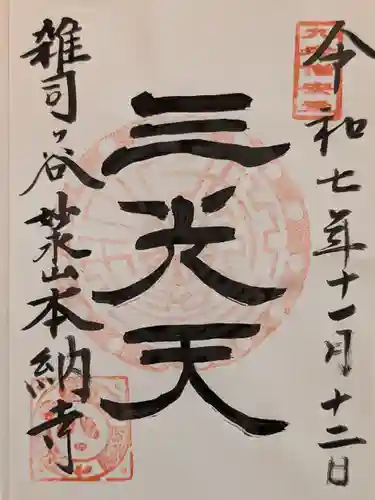 令和七年十一月十二日
三光天
雑司ヶ谷妙永山本納寺